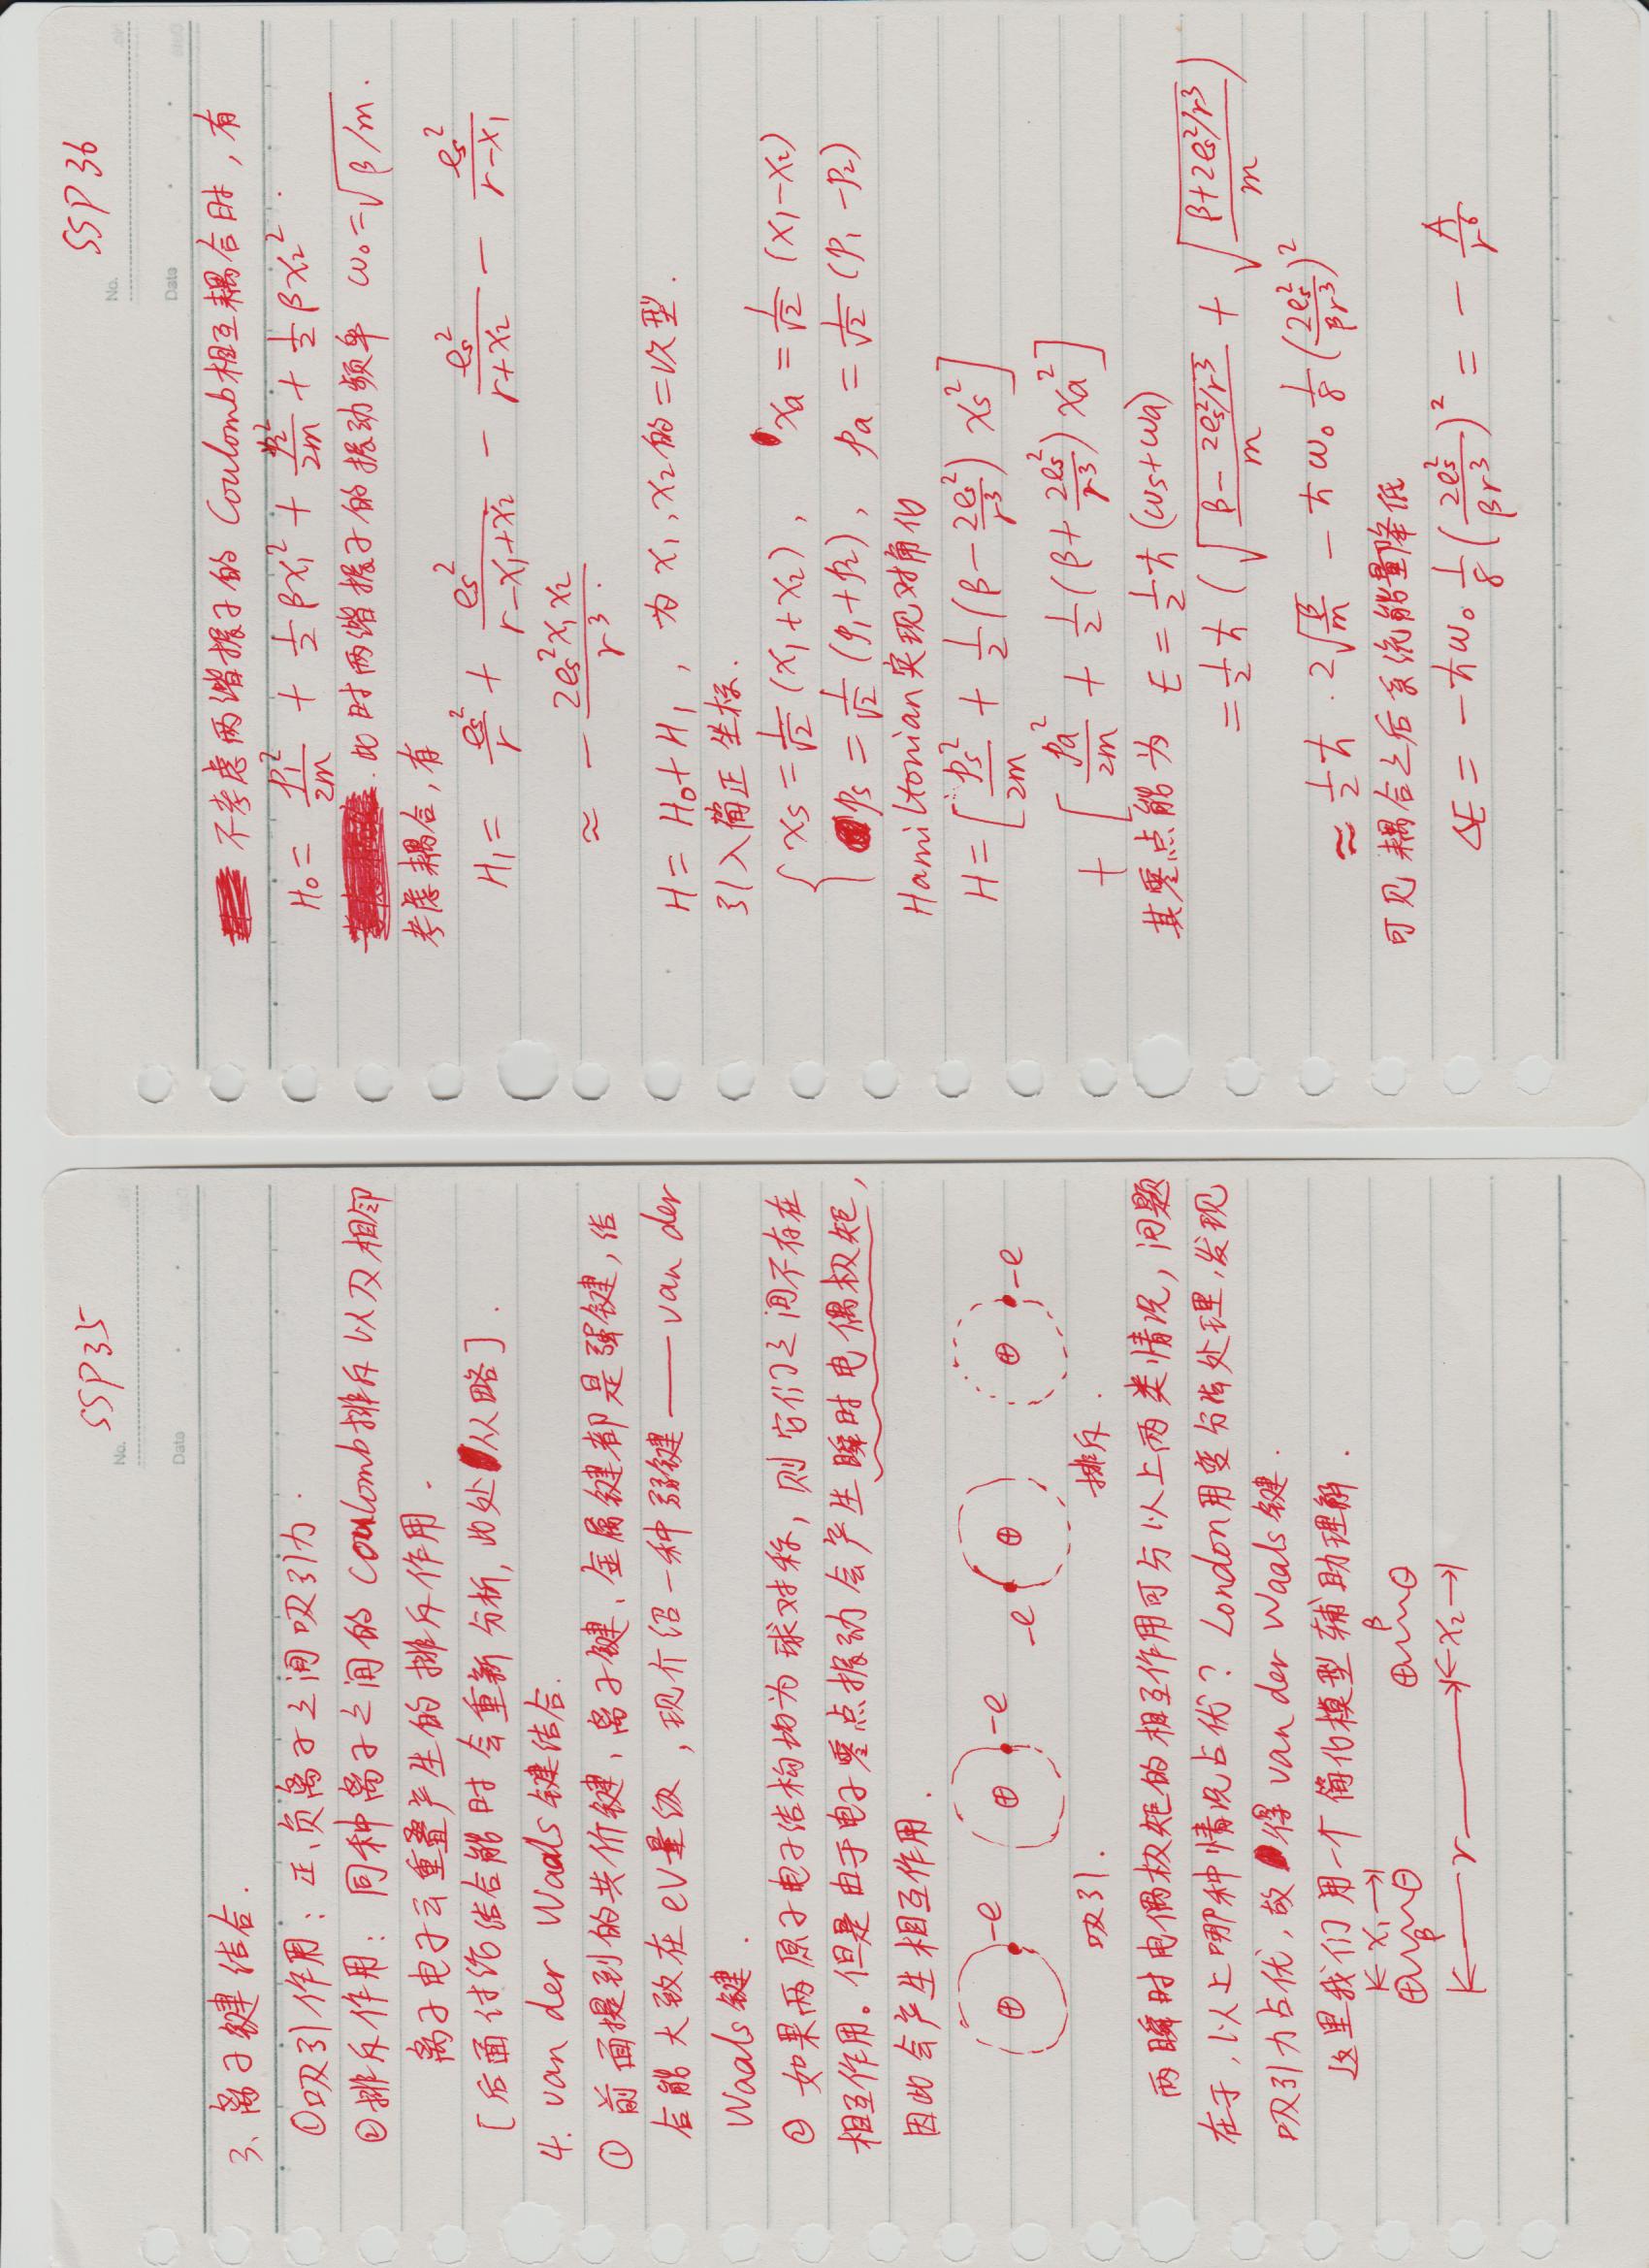 SSP35
No.
Date
3、离子键结合.
①吸引作用：正、负离子之间吸引力.
②排斥作用：同种离子之间的Coulomb排斥以及相邻
离子电子云重叠产生的排斥作用.
[后面讨论结合能时会重新分析,此处从略].
4. van der Waals键结合.
① 前面提到的共价键、离子键、金属键都是强键,结
合能大致在eV量级,现介绍一种弱键——van der
Waals键.
② 如果两原子电子结构均为球对称,则它们之间不存在
相互作用。但是由于电子零点振动会产生瞬时电偶极矩,
因此会产生相互作用.
⊕ -e ⊕ -e -e ⊕ ⊕ -e
吸引. 排斥.
两瞬时电偶极矩的相互作用可分以上两类情况,问题
在于,以上哪种情况占优?London用变分法处理,发现
吸引力占优,故得van der Waals键.
这里我们用一个简化模型辅助理解.
x₁ β
⊕ ⊖ ⊕ ⊖
β
r x₂
SSP36
No.
Date
不考虑两谐振子的Coulomb相互耦合时,有
H₀ = p₁²/2m + 1/2 βx₁² + p₂²/2m + 1/2 βx₂².
此时两谐振子的振动频率 ω₀=√β/m.
考虑耦合,有
H₁ = eₛ²/r + eₛ²/(r-x₁+x₂) - eₛ²/(r+x₂) - eₛ²/(r-x₁)
≈ - 2eₛ²x₁x₂/r³.
H = H₀+H₁, 为x₁,x₂的二次型.
引入简正坐标.
{ xₛ = 1/√2 (x₁+x₂), xₐ = 1/√2 (x₁-x₂)
pₛ = 1/√2 (p₁+p₂), pₐ = 1/√2 (p₁-p₂)
Hamiltonian实现对角化
H = [pₛ²/2m + 1/2(β - 2eₛ²/r³) xₛ²]
+ [pₐ²/2m + 1/2(β + 2eₛ²/r³) xₐ²]
其零点能为 E = 1/2 ħ (ωₛ+ωₐ)
= 1/2 ħ (√((β-2eₛ²/r³)/m) + √((β+2eₛ²/r³)/m))
≈ 1/2 ħ · 2√(β/m) - ħω₀ 1/8 (2eₛ²/βr³)²
可见耦合之后系统能量降低
ΔE = -ħω₀ 1/8 (2eₛ²/βr³)² = - A/r⁶